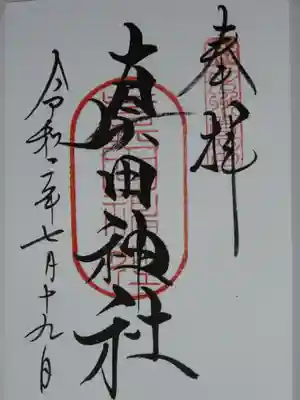 奉拝
真田神社
令和二年七月十九日